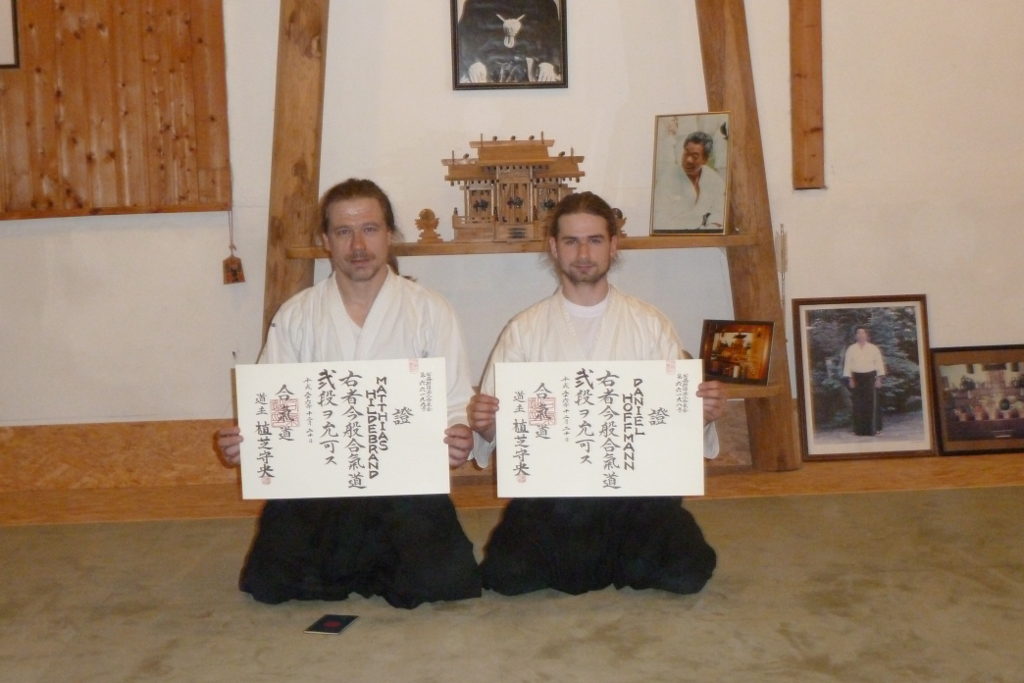 證
MATTHIAS
HILDEBRAND
右者今般合氣道
弐段ヲ允可ス
合氣道
道主 植芝守央
證
DANIEL
HOFFMANN
右者今般合氣道
弐段ヲ允可ス
合氣道
道主 植芝守央